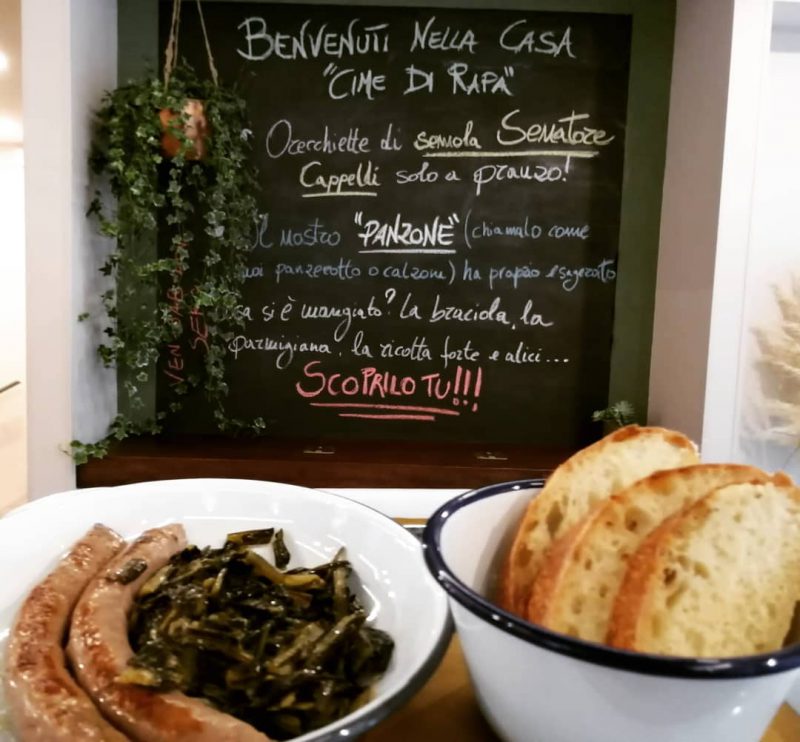 BENVENUTI NELLA CASA
"CIME DI RAPA"
Orecchiette di semola Senatore
Cappelli solo a pranzo!
Il nostro "PANZONE" (chiamalo come
panzerotto o calzone) ha proprio esagerato
si è mangiato? La braciola, la
parmigiana, la ricotta forte e alici...
SCOPRILO TU!!!
VEN SAB
SERA